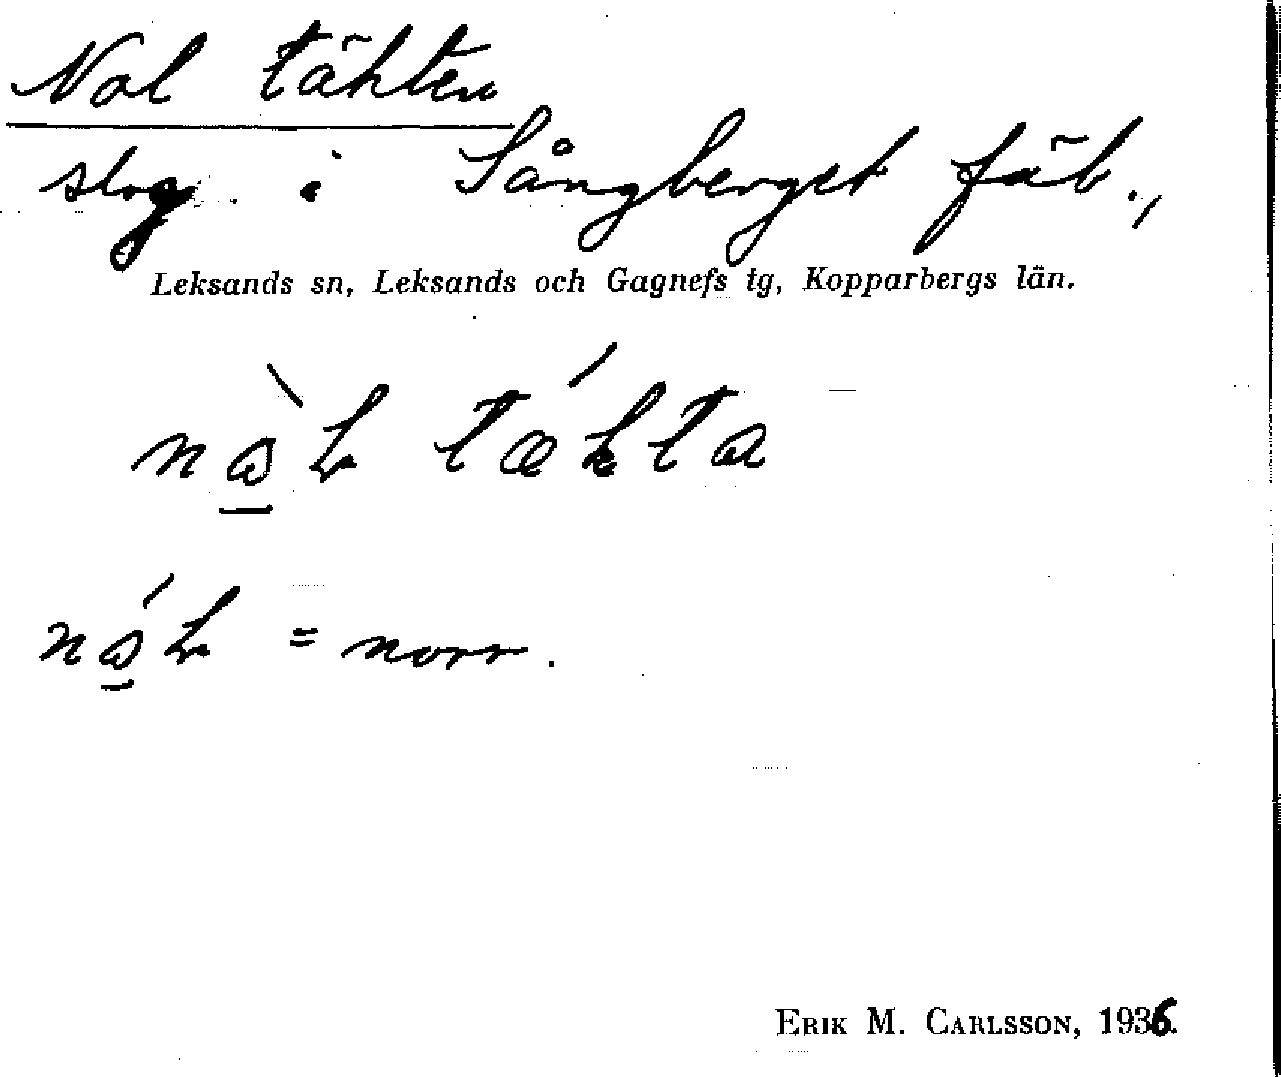 Nol täkten
slog i Sångberget fäb.,
Leksands sn, Leksands och Gagnefs tg, Kopparbergs län.
nɷ̲̀ɫ tǽkta
nɷ̲́ɫ = norr.
ERIK M. CARLSSON, 1936.